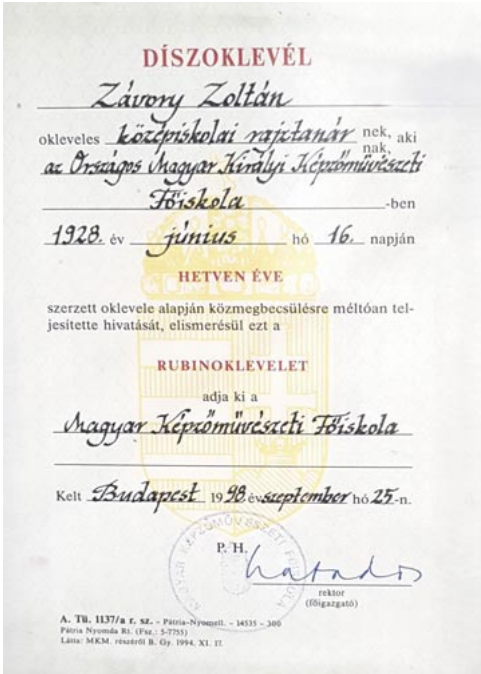 DÍSZOKLEVÉL
Závory Zoltán
okleveles középiskolai rajztanár nek, nak, aki
az Országos Magyar Királyi Képzőművészeti
Főiskola -ben
1928. év június hó 16. napján
HETVEN ÉVE
szerzett oklevele alapján közmegbecsülésre méltóan tel-
jesítette hivatását, elismerésül ezt a
RUBINOKLEVELET
adja ki a
Magyar Képzőművészeti Főiskola
Kelt Budapest 1998. év szeptember hó 25-n.
P. H.
MAGYAR KÉPZŐMŰVÉSZETI FŐISKOLA
rektor
(főigazgató)
A. Tü. 1137/a r. sz. - Pátria-Nyomell. - 14535 - 300
Pátria Nyomda Rt. (Fsz.: 5-7755)
Látta: MKM. részéről B. Gy. 1994. XI. 17.